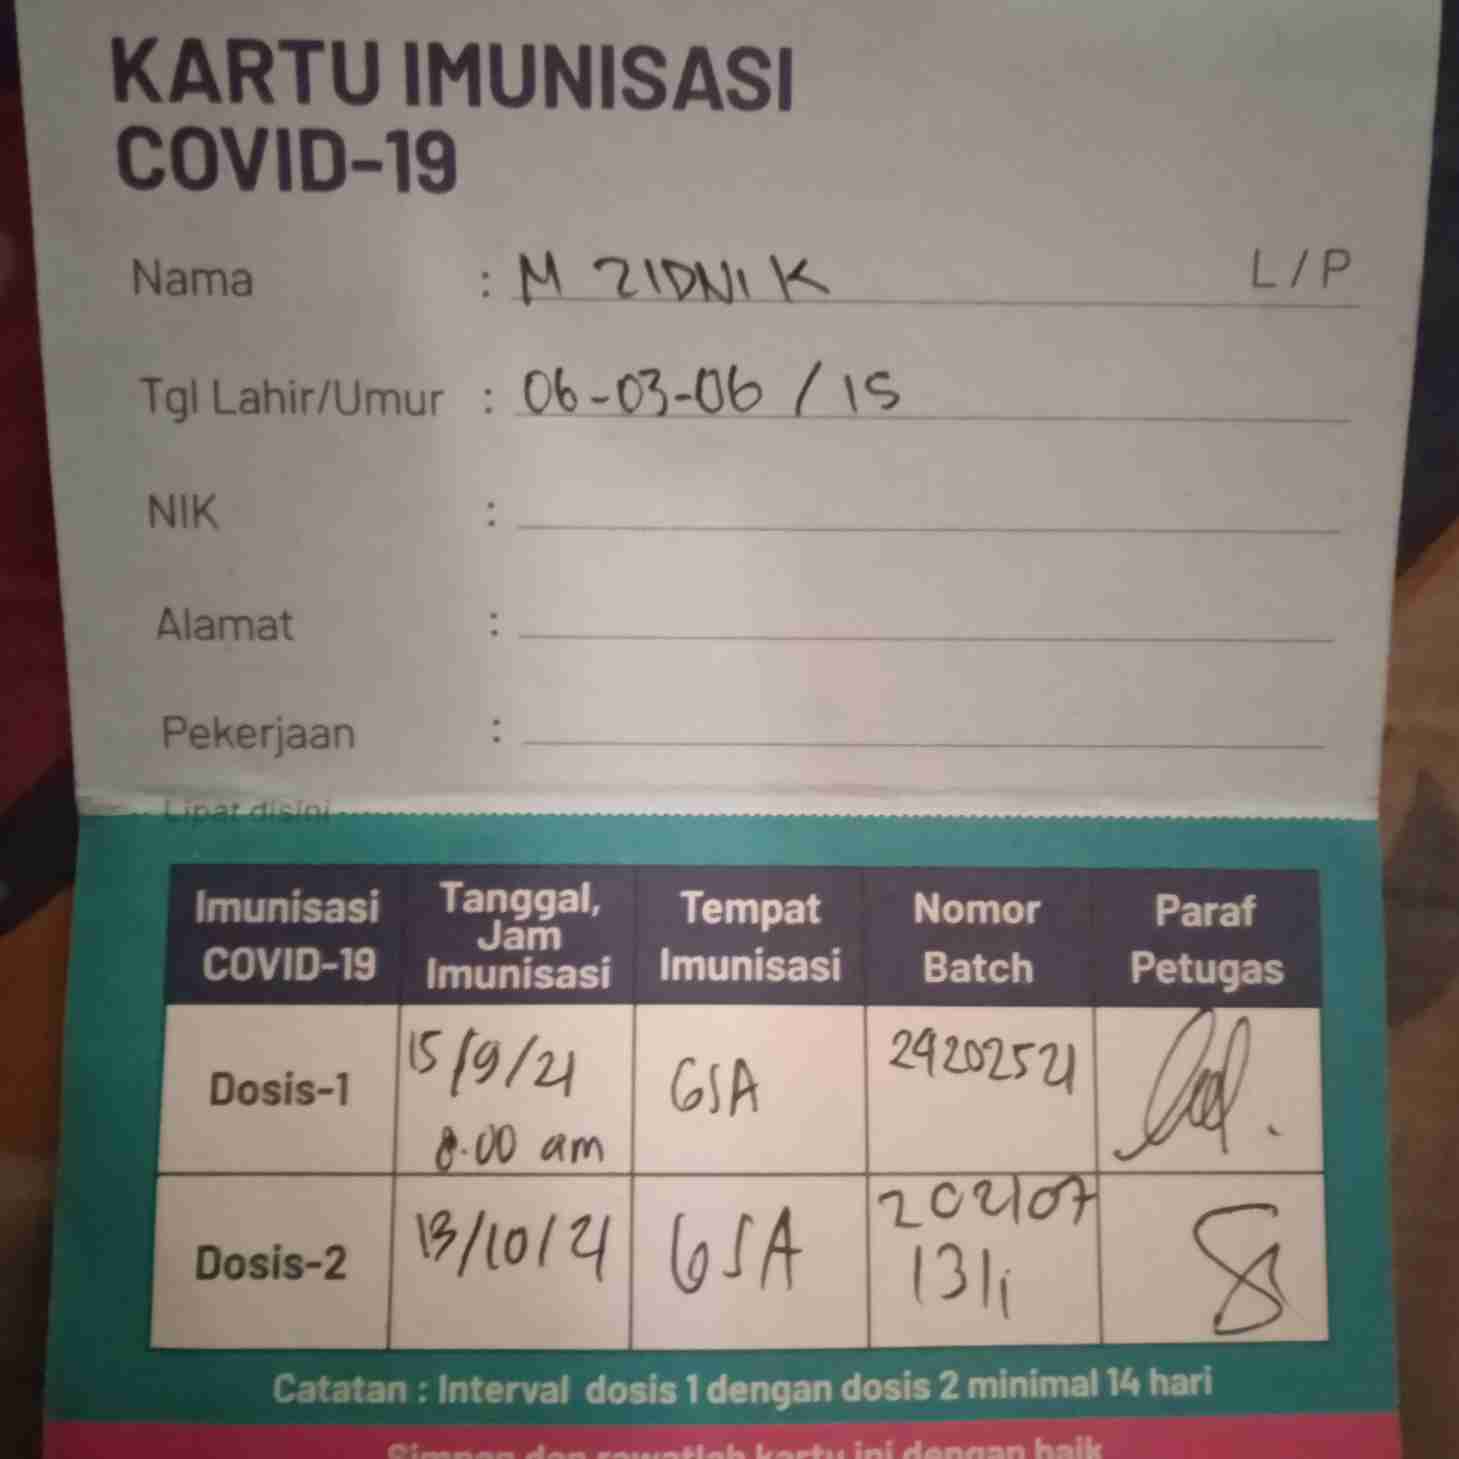 KARTU IMUNISASI
COVID-19
Nama : M ZIDNI K L / P
Tgl Lahir/Umur : 06-03-06 / 15
NIK :
Alamat :
Pekerjaan :
Lipat disini
Imunisasi COVID-19
Tanggal, Jam Imunisasi
Tempat Imunisasi
Nomor Batch
Paraf Petugas
Dosis-1
15/9/21
8.00 am
GSA
29202521
Dosis-2
13/10/21
GSA
202107
Catatan : Interval dosis 1 dengan dosis 2 minimal 14 hari
Simpan dan rawatlah kartu ini dengan baik